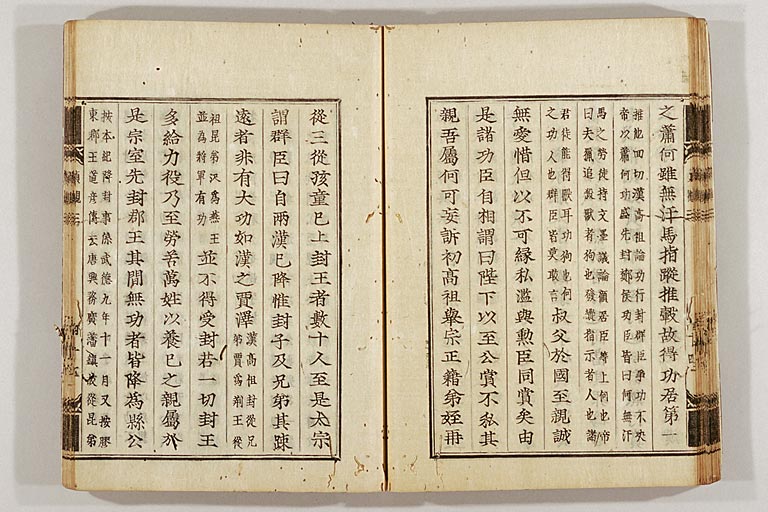 之蕭何雖無汗馬指蹤推轂故得功居第一
推他回切漢高祖論功行封群臣爭功不決
帝以蕭何功盛先封酇侯功臣皆曰何無汗
馬之勞徒持文墨議論顧居臣等上何也帝
曰夫獵追殺獸者狗也發蹤指示者人也諸
君徒能得獸耳功狗也何
之功人也群臣皆莫敢言
叔父於國至親誠
無愛惜但以不可緣私濫與勳臣同賞矣由
是諸功臣自相謂曰陛下以至公賞不私其
親吾屬何可妄訴初高祖舉宗正籍弟姪再
從三從孩童已上封王者數十人至是太宗
謂群臣曰自兩漢已降惟封子及兄弟其踈
遠者非有大功如漢之賈澤
漢高祖封從兄
弟賈為荊王從
祖昆弟澤為燕王
並為將軍有功
並不得受封若一切封王
多給力役乃至勞苦萬姓以養已之親屬於
是宗室先封郡王其間無功者皆降為縣公
按本紀降封事係武德九年十一月又按膠
東郡王道彥傳云唐興務廣藩鎮故從昆弟